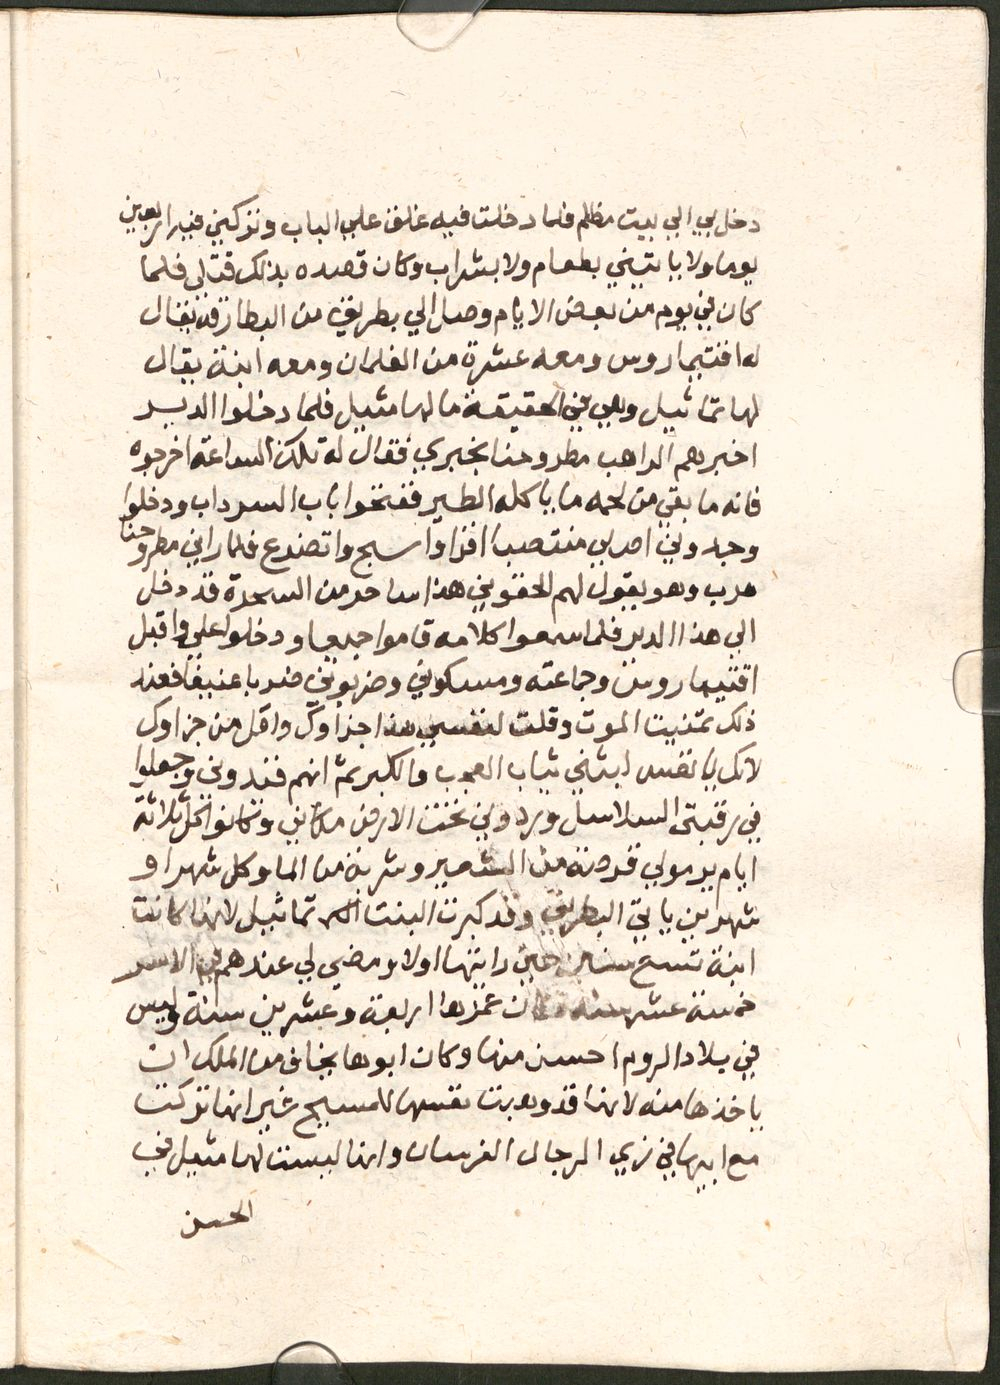 دخل بي الي بيت مظلم فلما دخلت فيه غلق علي الباب وتركني فيه اربعين
يوما ولا ياتيني بطعام ولا بشراب وكان قصده بذلك قتلي فلما
كان في يوم من بعض الايام وصل الي بطريق من البطارقه يقال
له افتيماروس ومعه عشرة من الغلمان ومعه ابنة يقال
لها تماثيل وهي في الحقيقة ما لها مثيل فلما دخلوا الدير
اخبرهم الراهب مطروحنا بخبري فقال له تلك الساعة اخرجوه
فانه ما بقي من لحمه ما ياكله الطير ففتحوا باب السرداب ودخلوا
وجدوني اصلي منتصبا اقرا واسبح واتضرع فلما راني مطروحنا
هرب وهو يقول لهم الحقوني هذا ساحر من السحرة قد دخل
الي هذا الدير فلما سمعوا كلامه قاموا جميعا ودخلوا علي واقبل
افتيماروس وجماعته ومسكوني وضربوني ضربا عنيفا فعند
ذلك تمنيت الموت وقلت لنفسي هذا جزاوك واقل من جزاوك
لانك يا نفس لبستي ثياب العجب والكبر ثم انهم قيدوني وجعلوا
في رقبتي السلاسل وردوني تحت الارض مكاني وكانوا كل ثلاثة
ايام يرمولي قرصة من الشعير وشربة من الما وكل شهر او
شهرين ياتي البطريق وقد كبرت البنت تماثيل لانها كانت
ابنة تسع سنين حين رايتها اولا ومضي لي عندهم في الاسر
خمسة عشر سنه عمرها اربعة وعشرين سنة وليس
في بلاد الروم احسن منها وكان ابوها يخاف من الملك ان
ياخذها منه لانها قد وهبت نفسها للمسيح غير انها تركت
مع ابيها في زي الرجال الفرسان وانها ليست لها مثيل في
الحسن